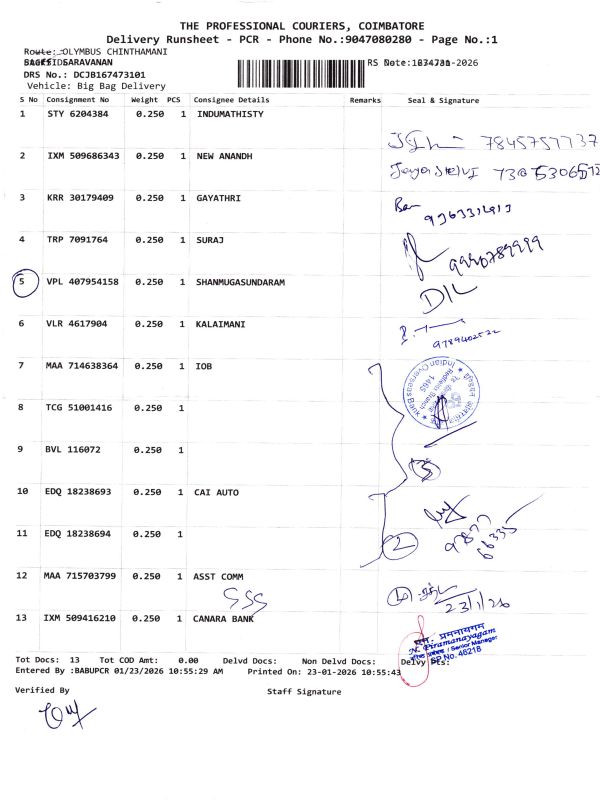 THE PROFESSIONAL COURIERS, COIMBATORE
Delivery Runsheet - PCR - Phone No.:9047080280 - Page No.:1
Route: OLYMBUS CHINTHAMANI
SARAVANAN
DRS No.: DCJB167473101
Vehicle: Big Bag Delivery
S No Consignment No Weight PCS Consignee Details Remarks Seal & Signature
1 STY 6204384 0.250 1 INDUMATHISTY
7845757737
2 IXM 509686343 0.250 1 NEW ANANDH
3 KRR 30179409 0.250 1 GAYATHRI
4 TRP 7091764 0.250 1 SURAJ
9990789999
5 VPL 407954158 0.250 1 SHANMUGASUNDARAM
6 VLR 4617904 0.250 1 KALAIMANI
9789402522
7 MAA 714638364 0.250 1 IOB
Indian Overseas Bank
1465
8 TCG 51001416 0.250 1
9 BVL 116072 0.250 1
3
10 EDQ 18238693 0.250 1 CAI AUTO
9877
66335
11 EDQ 18238694 0.250 1
2
12 MAA 715703799 0.250 1 ASST COMM
23/1/26
13 IXM 509416210 0.250 1 CANARA BANK
एम. प्रमनायगम
N. Piramanayagam
Senior Manager
SP No. 46218
Tot Docs: 13 Tot COD Amt: 0.00 Delvd Docs: Non Delvd Docs: Delvy
Entered By :BABUPCR 01/23/2026 10:55:29 AM Printed On: 23-01-2026 10:55:43
Verified By Staff Signature